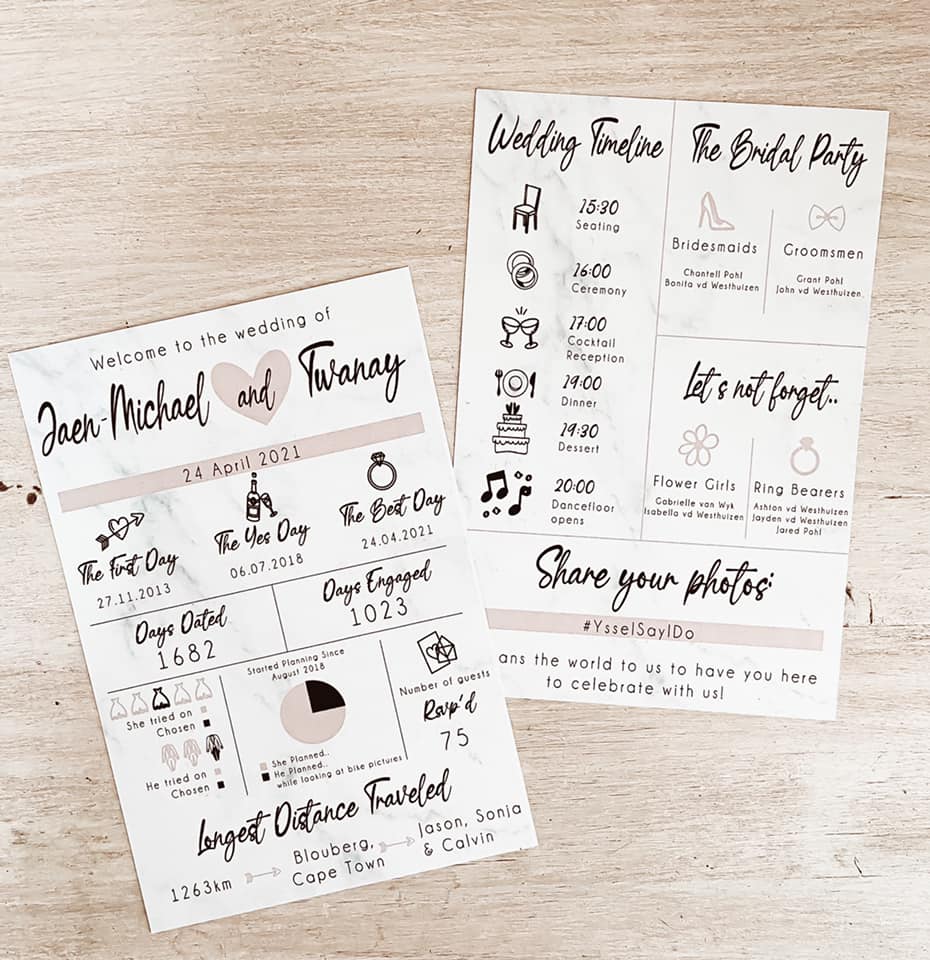 Welcome to the wedding of
Jaen-Michael and Twanay
24 April 2021
The First Day
27.11.2013
The Yes Day
06.07.2018
The Best Day
24.04.2021
Days Dated
1682
Days Engaged
1023
She tried on
Chosen
He tried on
Chosen
Started Planning Since
August 2018
She Planned..
He Planned..
while looking at bike pictures
Number of guests
Rsvp'd
75
Longest Distance Traveled
1263km
Blouberg,
Cape Town
Jason, Sonja
& Calvin
Wedding Timeline
15:30
Seating
16:00
Ceremony
17:00
Cocktail
Reception
19:00
Dinner
19:30
Dessert
20:00
Dancefloor
opens
The Bridal Party
Bridesmaids
Chantell Pohl
Bonita vd Westhuizen
Groomsmen
Grant Pohl
John vd Westhuizen
Let's not forget..
Flower Girls
Gabrielle van Wyk
Isabella vd Westhuizen
Ring Bearers
Ashton vd Westhuizen
Jayden vd Westhuizen
Jared Pohl
Share your photos:
#YsselSayIDo
ans the world to us to have you here
to celebrate with us!